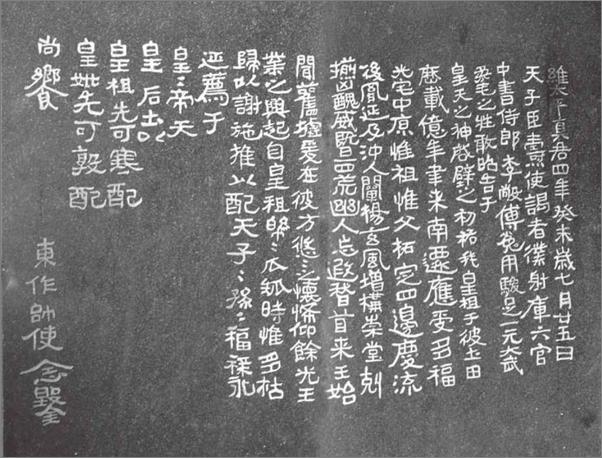 維太平真君四年癸未歲七月廿五日
天子臣燾使謁者僕射庫六官
中書侍郎李敞傅㝹用駿足一元大武
柔毛之牲敢昭告于
皇天之神啓辟之初祐我皇祖于彼土田
歷載億年聿来南遷應受多福
光宅中原惟祖惟父拓定四邊慶流
後胤延及沖人闡揚玄風增構崇堂剋
揃凶醜威暨四荒幽人忘遐稽首来王始
聞舊墟爰在彼方悠〻之懷悕仰餘光王
業之興起自皇祖綿〻瓜瓞時惟多祜
歸以謝施推以配天子〻孫〻福祿永
延薦于
皇〻帝天
皇 后土以
皇祖先可寒配
皇妣先可敦配
尚饗
東作帥使念鑿